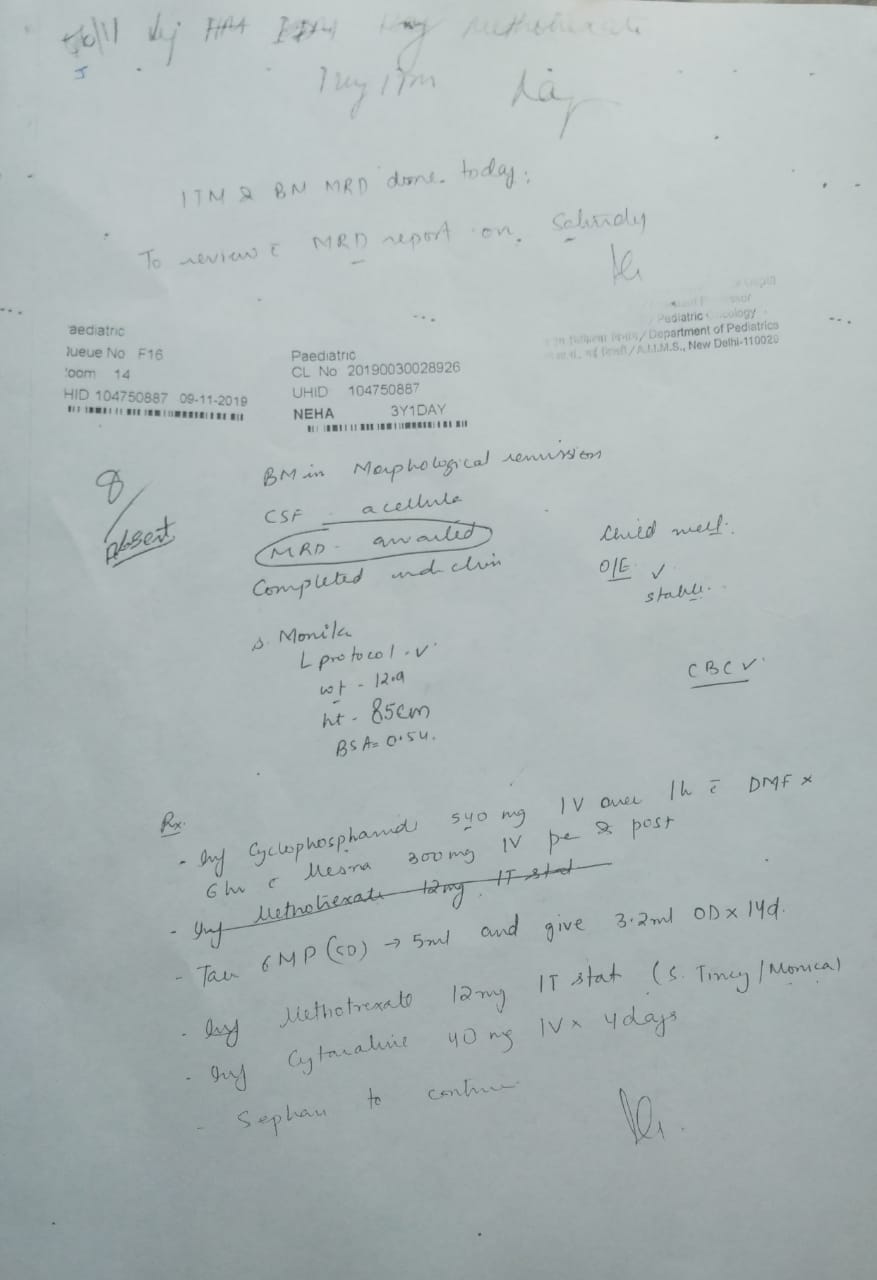 ITM & BM MRD done today;
To review c̄ MRD report on
Pediatric
Department of Pediatrics
A.I.I.M.S., New Delhi-110029
aediatric
ueue No F16
oom 14
HID 104750887 09-11-2019
Paediatric
CL No 20190030028926
UHID 104750887
NEHA 3Y1DAY
8
Absent
BM in Morphological remission
CSF - acellula
MRD - awaited
Completed
Child well.
O/E ✓
stable.
s. Monika
L protocol
wt - 12.9
ht - 85cm
BSA = 0.54.
CBC ✓
Rx
- Inj Cyclophosphamid 540 mg IV over 1h c̄ DMF x
6 hr c̄ Mesna 300mg IV pe & post
- Inj Methotrexate 12mg IT stat
- Tab 6MP (50) → 5ml and give 3.2ml OD x 14d.
- Inj Methotrexate 12mg IT stat (S. Tincy/Monica)
- Inj Cytarabine 40 mg IV x 4 days
- Septran to continue